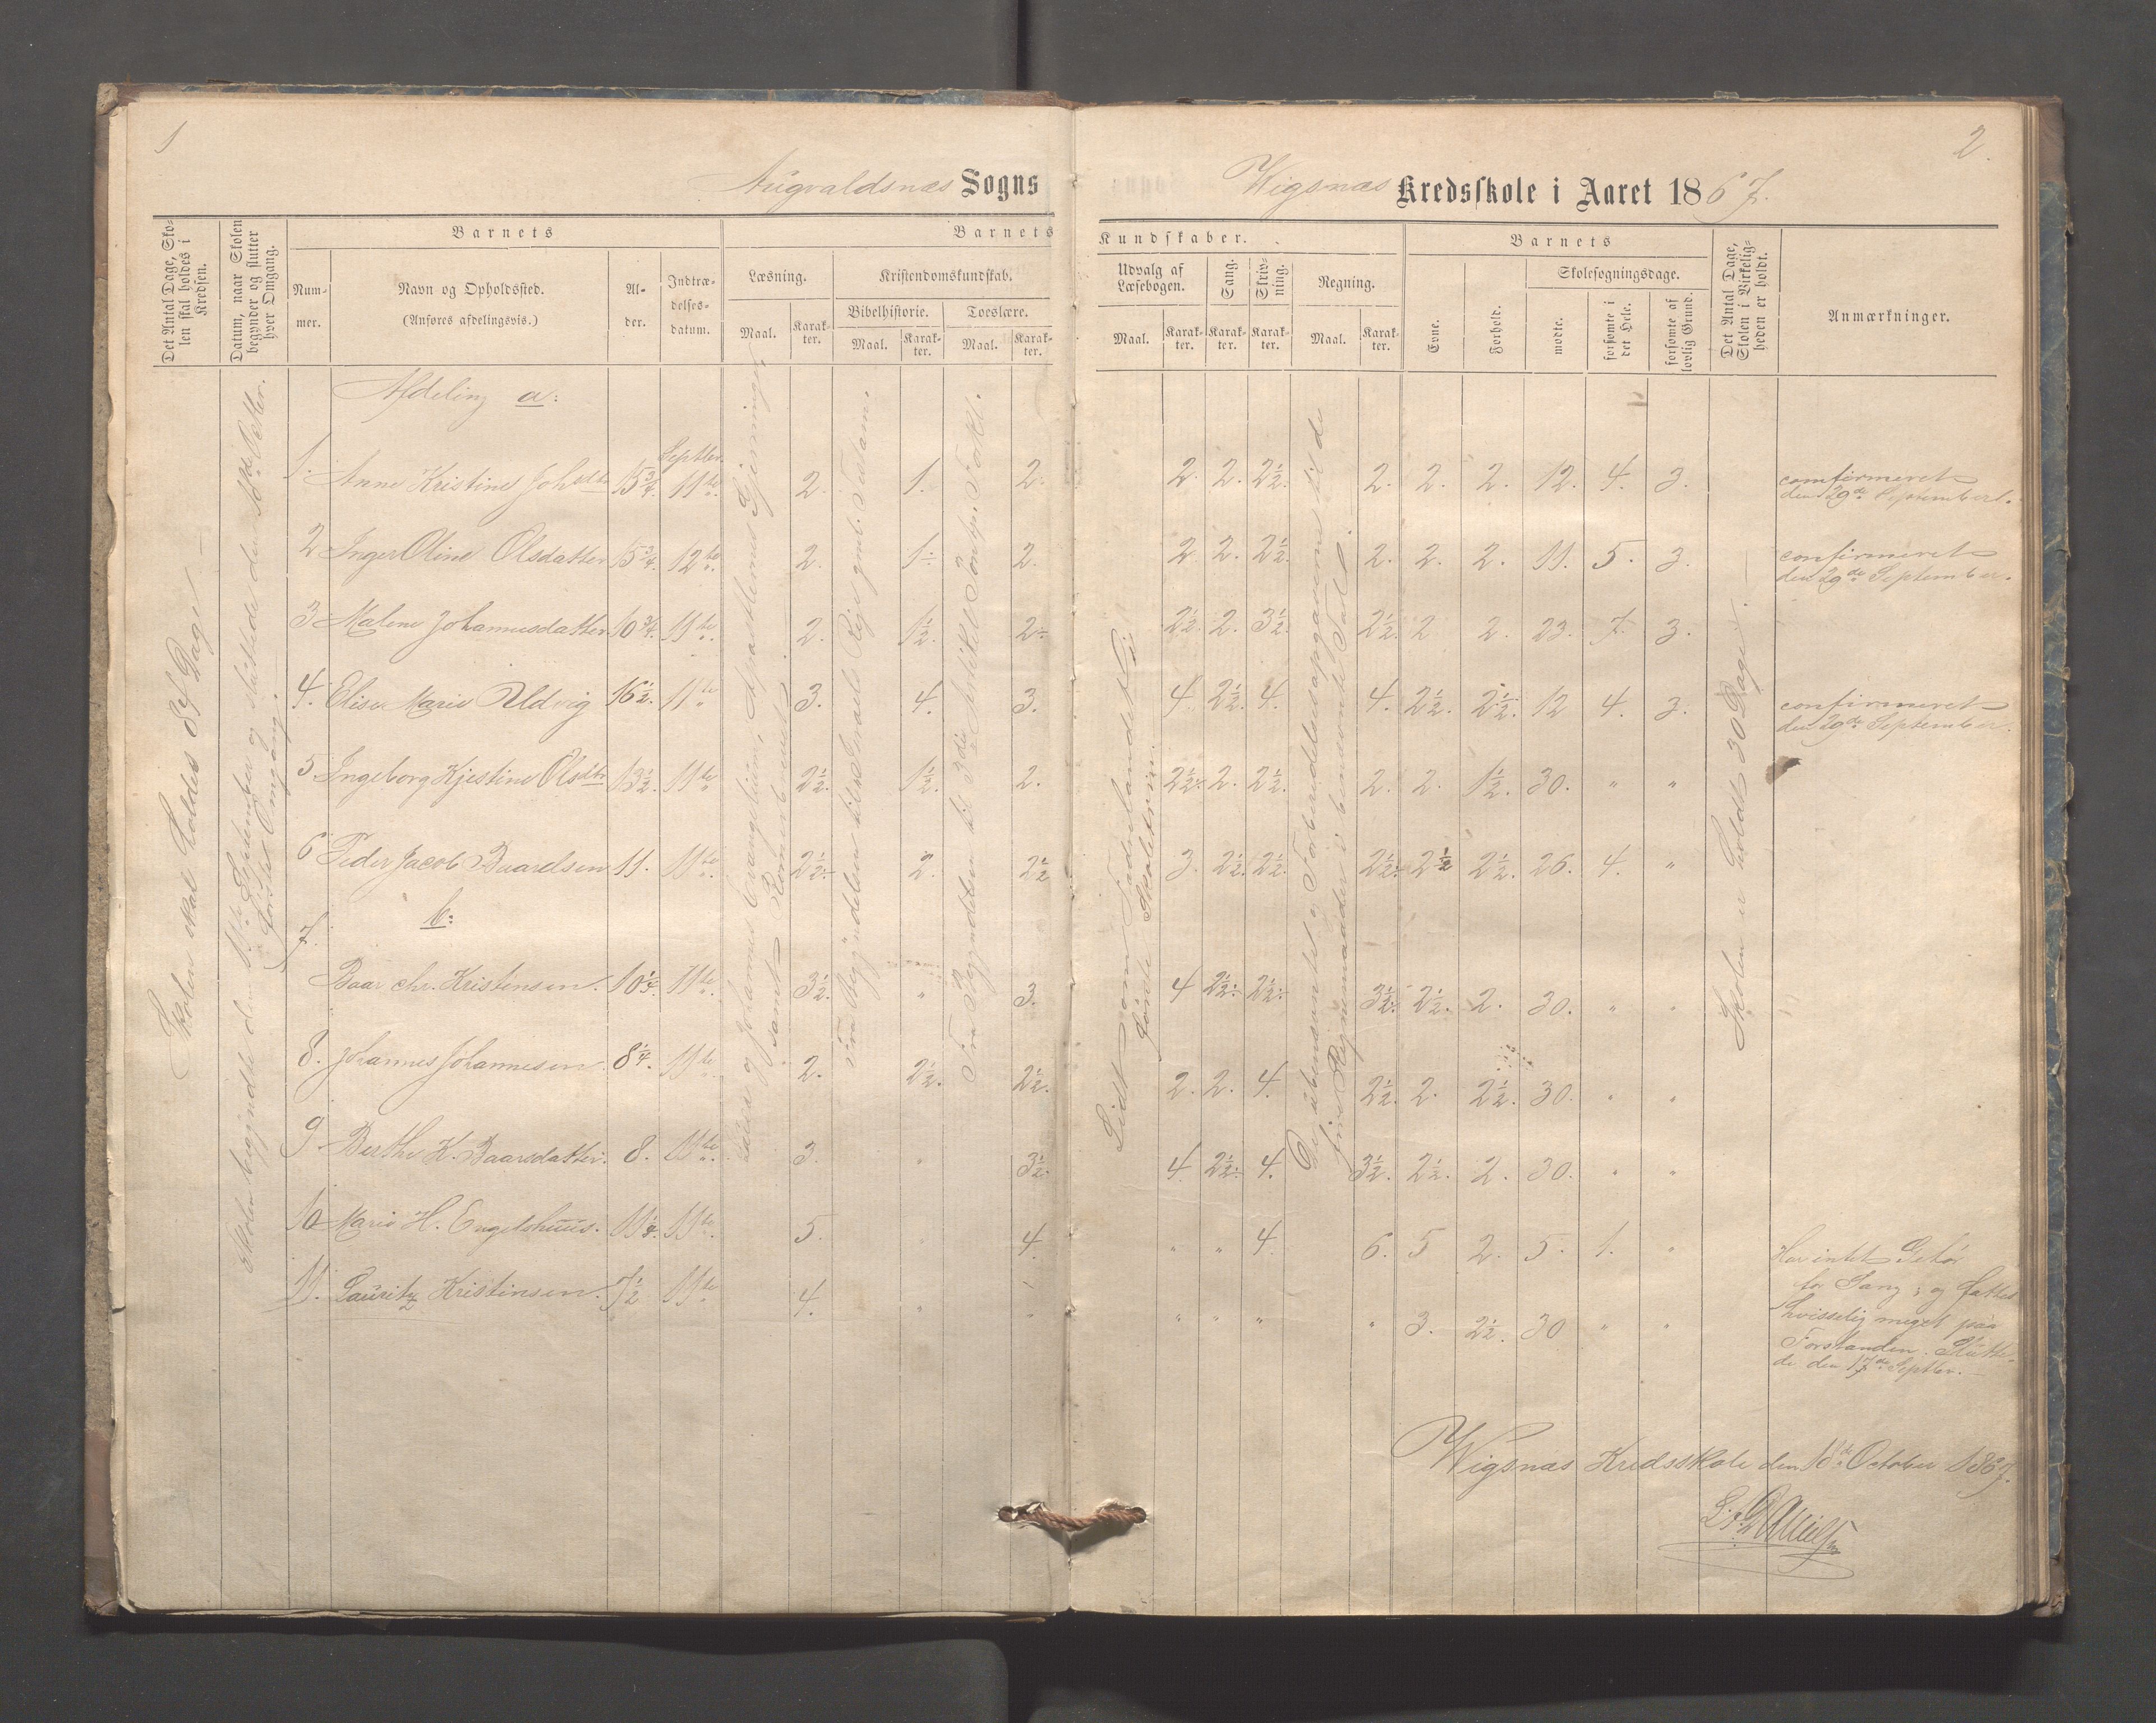 1
2.
Augvaldsnæs Sogns
Wigsnæs Kredsskole i Aaret 1867.
Det Antal Dage, Skolen skal holdes i Kredsen.
Datum, naar Skolen begynder og slutter hver Omgang.
Barnets
Nummer.
Navn og Opholdssted.
(Anføres afdelingsvis.)
Alder.
Indtrædelsesdatum.
Barnets
Læsning.
Maal.
Karakter.
Kristendomskundskab.
Bibelhistorie.
Maal.
Karakter.
Troeslære.
Maal.
Karakter.
Kundskaber.
Udvalg af Læsebogen.
Maal.
Karakter.
Sang.
Karakter.
Skrivning.
Karakter.
Regning.
Maal.
Karakter.
Barnets
Evne.
Forhold.
Skolesøgningsdage.
mødte.
forsømte i det Hele.
forsømte af lovlig Grund.
Det Antal Dage, Skolen i Virkeligheden er holdt.
Anmærkninger.
Skolen skal holdes 84 Dage
Skolen begyndte den 11te September og sluttede den 16de Octber.
første Omgang.
Læses og Johannes Evangelium, Apostlernes Gjerninger
samt Romerbrevet
Fra Begyndelsen til
Fra Begyndelsen til 3die Artikel
Lidt om Fædrelandet
første Skoletrin.
fire Regnemaader i benævnte Tal
Skolen er holdt 30 Dage
Afdeling a:
Septbr.
1. Anne Kristine Johsdtr 15 3/4. 11te 2. 1. 2. 2. 2. 2 1/2. 2. 2. 2. 12. 4. 3. confirmeret
den 29de September.
2 Inger Oline Olsdatter 15 3/4. 12te 2. 1÷ 2. 2. 2. 2 1/2. 2. 2. 2. 11. 5. 3. confirmeret
den 29de September.
3 Malene Johannesdatter 10 3/4. 11te 2. 1 1/2. 2÷ 2 1/2. 2. 3 1/2. 2 1/2. 2 2. 23. 7. 3.
4. Elise Marie Aldvig 16 1/2. 11te 3. 4. 3. 4 2 1/2. 4. 4. 2 1/2. 2 1/2. 12 4. 3. confirmeret
den 29de September.
5 Ingeborg Kjestine Olsdtr 13 1/2. 11te 2 1/2. 1 1/2. 2. 2 1/2. 2. 2 1/2. 2. 2. 1 1/2. 30. " "
6 Peder Jacob Baardsen 11. 11te 2 1/2. 2. 2 1/2 3. 2 1/2. 2 1/2. 2 1/2. 2 1/2 2 1/2. 26. 4. "
b:
7. Baar Chr. Kristensen. 10 1/4. 11te 3 1/2. " 3. 4 2 1/2. 2 1/2. 3 1/2. 2 1/2. 2. 30. " "
8. Johannes Johannesen. 8 1/4. 11te 2. 2 1/2. 2 1/2. 2. 2. 4. 2 1/2. 2. 2 1/2. 30. " "
9. Berthe K. Baarsdatter. 8. 11te 3. " 3 1/2. 4. 2 1/2. 4. 3 1/2. 2 1/2. 2. 30. " "
10 Marie H. Engelshuus. 11te 5. " 4. " " 4. 6. 5 2. 5. 1. " Har intet Gehør
for Sang; og fattes
hvisselig meget paa
Forstanden. Slutte-
de den 17de Septbr.
11. Lauritz Kristensen. 7 1/2 11te 4. " " " " " " 3. 2 1/2. 30 " "
Wigsnæs Kredsskole den 16de October 1867.